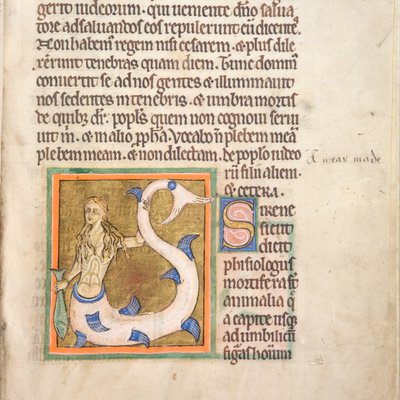 gerto iudeorum. qui ueniente dño salua
tore ad saluandos eos repulerunt eu dicentes.
Non habem' regem nisi cesarem. & plus dile
xerunt tenebras quam diem. Tunc domin'
conuertit se ad nos gentes & illuminauit
nos sedentes in tenebris. & umbra mortis
de quib; dr̄. popl's quem non cognoui serui
uit m̄. & in alio ppha. Vocabo ñ plebem meā
plebem meam. & non dilectam. De poplo iudeo
rū filii alieni.
& cetera.
a mear made
Sirene
sicut
dicit
phisiologus
mortifera st̄
animalia q̄
a capite usq;
ad umbilicū
figā s hoium